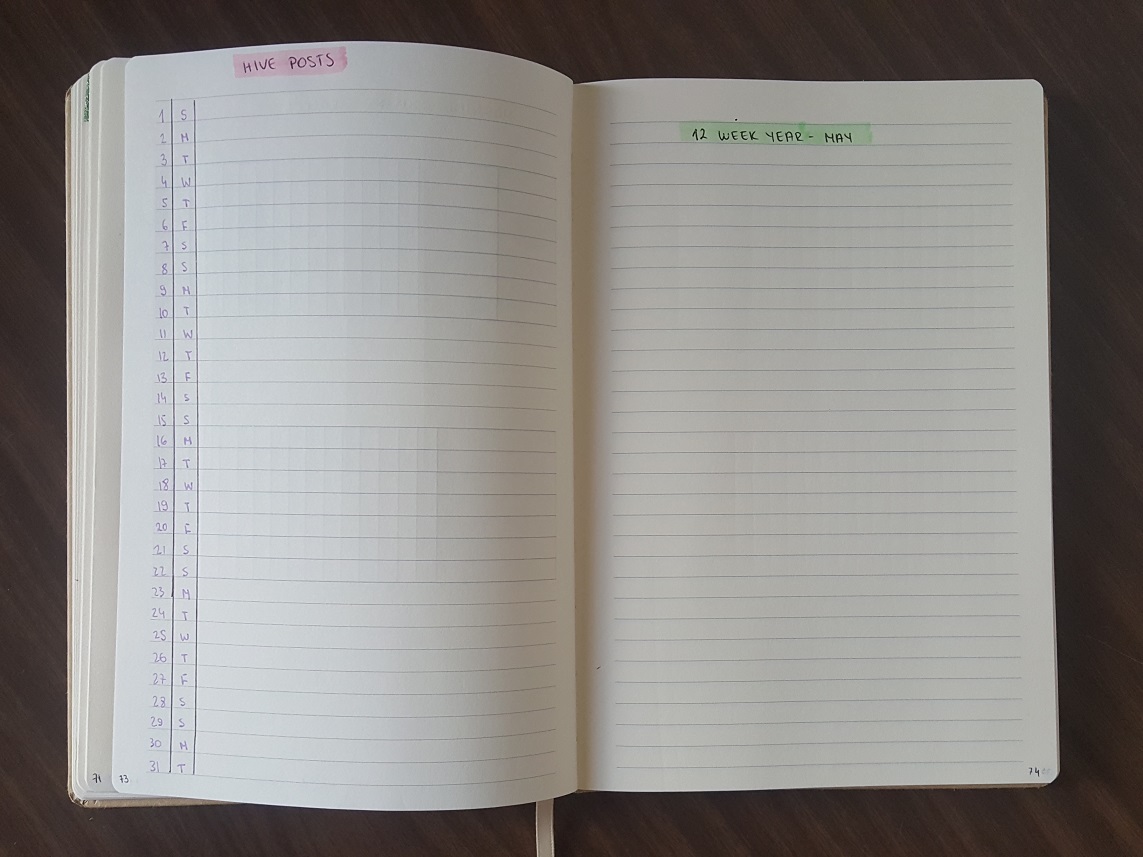 HIVE POSTS
1 S
2 M
3 T
4 W
5 T
6 F
7 S
8 S
9 M
10 T
11 W
12 T
13 F
14 S
15 S
16 M
17 T
18 W
19 T
20 F
21 S
22 S
23 M
24 T
25 W
26 T
27 F
28 S
29 S
30 M
31 T
71 73
12 WEEK YEAR - MAY
74